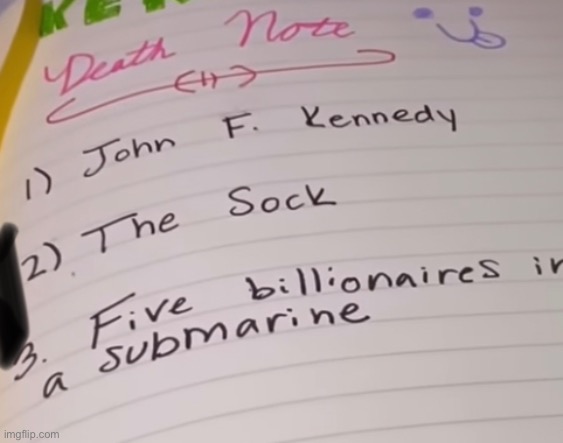 Death Note
1) John F. Kennedy
2). The Sock
3. Five billionaires in
a submarine
imgflip.com